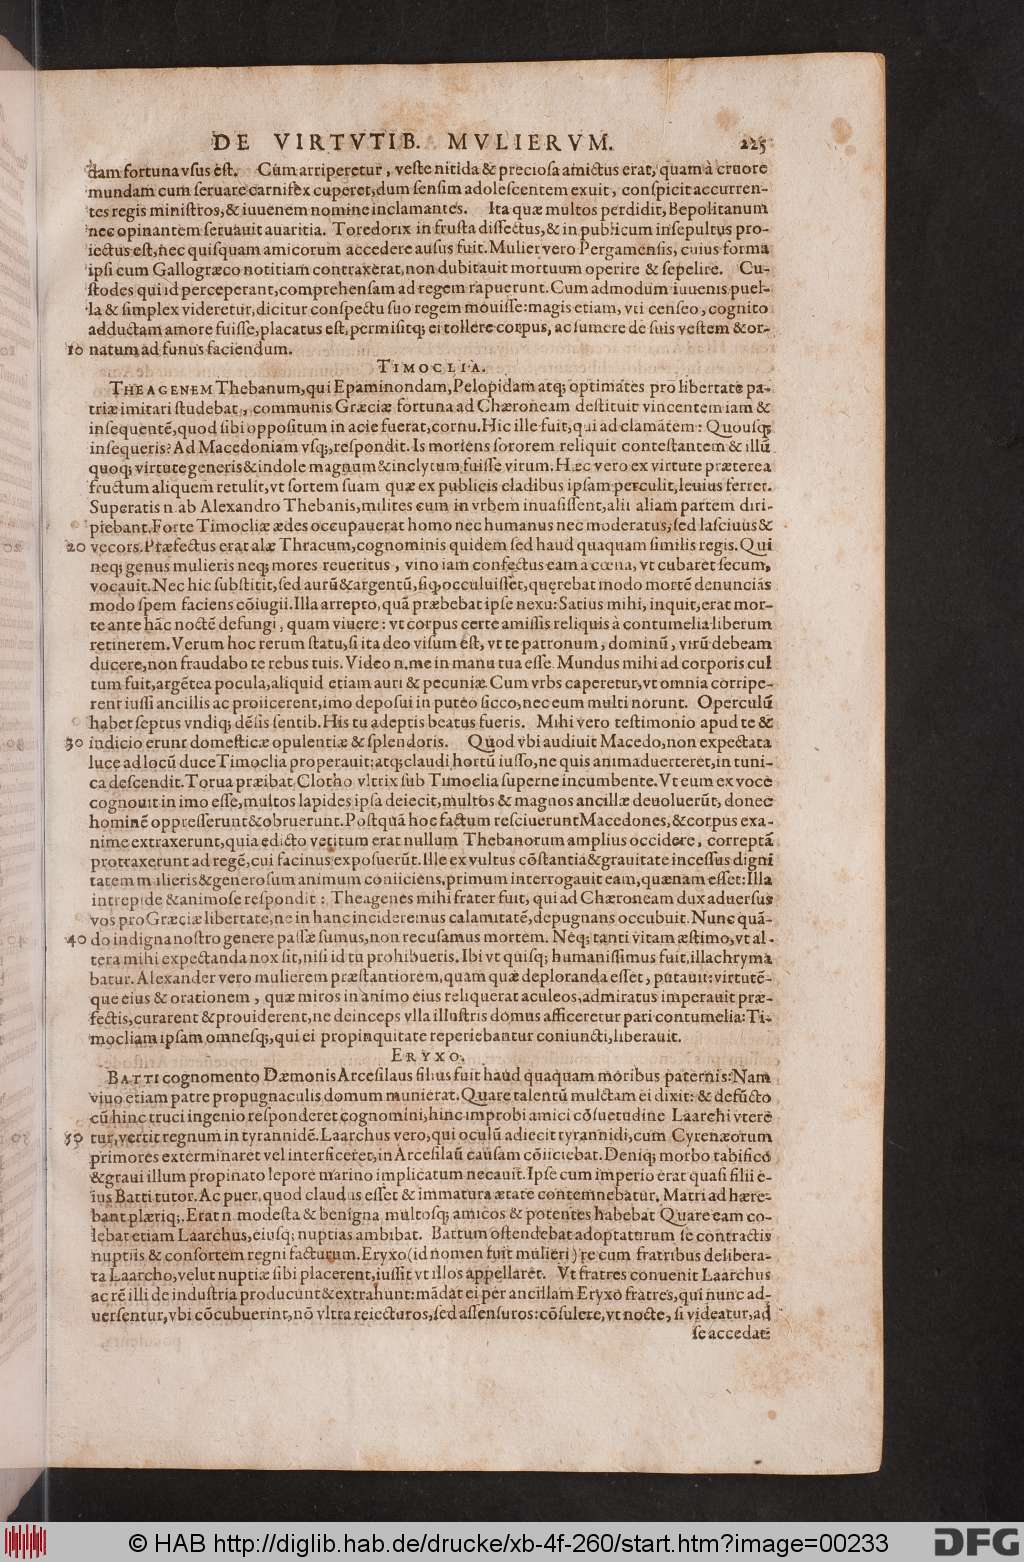 DE VIRTVTIB. MVLIERVM. 225
dam fortuna vsus est. Cum arriperetur, veste nitida & preciosa amictus erat, quam à cruore
mundam cum seruare carnifex cuperet, dum sensim adolescentem exuit, conspicit accurren-
tes regis ministros, & iuuenem nomine inclamantes. Ita quæ multos perdidit, Bepolitanum
nec opinantem seruauit auaritia. Toredorix in frusta dissectus, & in publicum insepultus pro-
iectus est, nec quisquam amicorum accedere ausus fuit. Mulier vero Pergamensis, cuius forma
ipsi cum Gallogræco notitiam contraxerat, non dubitauit mortuum operire & sepelire. Cu-
stodes qui id perceperant, comprehensam ad regem rapuerunt. Cum admodum iuuenis puel-
la & simplex videretur, dicitur conspectu suo regem mouisse: magis etiam, vti censeo, cognito
adductam amore fuisse, placatus est, permisitq; ei tollere corpus, ac sumere de suis vestem & or-
10 natum ad funus faciendum.
TIMOCLIA.
THEAGENEM Thebanum, qui Epaminondam, Pelopidam atq; optimates pro libertate pa-
triæ imitari studebat, communis Græciæ fortuna ad Chæroneam destituit vincentem iam &
insequentē, quod sibi oppositum in acie fuerat, cornu. Hic ille fuit, qui ad clamatem: Quousq;
insequeris? Ad Macedoniam vsq;, respondit. Is moriens sororem reliquit contestantem & illū
quoq; virtute generis & indole magnum & inclytum fuisse virum. Hæc vero ex virtute præterea
fructum aliquem retulit, vt sortem suam quæ ex publicis cladibus ipsam perculit, leuius ferret.
Superatis n. ab Alexandro Thebanis, milites cum in vrbem inuasissent, alii aliam partem diri-
piebant. Forte Timocliæ ædes occupauerat homo nec humanus nec moderatus, sed lasciuus &
20 vecors. Præfectus erat alæ Thracum, cognominis quidem sed haud quaquam similis regis. Qui
neq; genus mulieris neq; mores reueritus, vino iam confectus eam à cœna, vt cubaret secum,
vocauit. Nec hic substitit, sed aurū & argentū, siq; occuluisset, quęrebat modo mortē denunciās
modo spem faciens cōiugii. Illa arrepto, quā præbebat ipse nexu: Satius mihi, inquit, erat mor-
te ante hāc noctē defungi, quam viuere: vt corpus certe amissis reliquis à contumelia liberum
retinerem. Verum hoc rerum statu, si ita deo visum est, vt te patronum, dominū, virū debeam
ducere, non fraudabo te rebus tuis. Video n. me in manu tua esse. Mundus mihi ad corporis cul
tum fuit, argētea pocula, aliquid etiam auri & pecuniæ. Cum vrbs caperetur, vt omnia corripe-
rent iussi ancillis ac proiicerent, imo deposui in puteo sicco, nec eum multi norunt. Operculū
habet septus vndiq; dēsis sentib. His tu adeptis beatus fueris. Mihi vero testimonio apud te &
30 indicio erunt domesticæ opulentiæ & splendoris. Quod vbi audiuit Macedo, non expectata
luce ad locū duce Timoclia properauit: atq; claudi hortū iusso, ne quis animaduerteret, in tuni-
ca descendit. Torua præibat Clotho vltrix sub Timoclia superne incumbente. Vt eum ex voce
cognouit in imo esse, multos lapides ipsa deiecit, multos & magnos ancillæ deuoluerūt, donec
hominē oppresserunt & obruerunt. Postquā hoc factum resciuerunt Macedones, & corpus exa-
nime extraxerunt, quia edicto vetitum erat nullum Thebanorum amplius occidere, correptā
protraxerunt ad regē, cui facinus exposuerūt. Ille ex vultus cōstantia & grauitate incessus digni
tatem mulieris & generosum animum coniiciens, primum interrogauit eam, quænam esset: Illa
intrepide & animose respondit: Theagenes mihi frater fuit, qui ad Chæroneam dux aduersus
vos pro Græciæ libertate, ne in hanc incideremus calamitatē, depugnans occubuit. Nunc quā-
40 do indigna nostro genere passæ sumus, non recusamus mortem. Neq; tanti vitam æstimo, vt al-
tera mihi expectanda nox sit, nisi id tu prohibueris. Ibi vt quisq; humanissimus fuit, illachryma
batur. Alexander vero mulierem præstantiorem, quam quæ deploranda esset, putauit: virtutē-
que eius & orationem, quæ miros in animo eius reliquerat aculeos, admiratus imperauit præ-
fectis, curarent & prouiderent, ne deinceps vlla illustris domus afficeretur pari contumelia: Ti-
mocliam ipsam omnesq;, qui ei propinquitate reperiebantur coniuncti, liberauit.
ERYXO.
BATTI cognomento Dæmonis Arcesilaus filius fuit haud quaquam moribus paternis: Nam
viuo etiam patre propugnaculis domum munierat. Quare talentū mulctam ei dixit: & defūcto
cū hinc truci ingenio responderet cognomini, hinc improbi amici cōsuetudine Laarchi vtere
50 tur, vertit regnum in tyrannidē. Laarchus vero, qui oculū adiecit tyrannidi, cum Cyrenæorum
primores exterminaret vel interficeret, in Arcesilaū causam cōiiciebat. Deniq; morbo tabifico
& graui illum propinato lepore marino implicatum necauit. Ipse cum imperio erat quasi filii e-
ius Batti tutor. Ac puer, quod claudus esset & immatura ætate contemnebatur. Matri ad hære-
bant plæriq;. Erat n. modesta & benigna multosq; amicos & potentes habebat Quare eam co-
lebat etiam Laarchus, eiusq; nuptias ambibat. Battum ostendebat adoptaturum se contractis
nuptiis & consortem regni facturum. Eryxo (id nomen fuit mulieri) re cum fratribus delibera-
ta Laarcho, velut nuptiæ sibi placerent, iussit vt illos appellaret. Vt fratres conuenit Laarchus
ac rē illi de industria producunt & extrahunt: mādat ei per ancillam Eryxo fratres, qui nunc ad-
uersentur, vbi cōcubuerint, nō vltra reiecturos, sed assensuros: cōsulere, vt nocte, si videatur, ad
se accedat:
© HAB http://diglib.hab.de/drucke/xb-4f-260/start.htm?image=00233
DFG